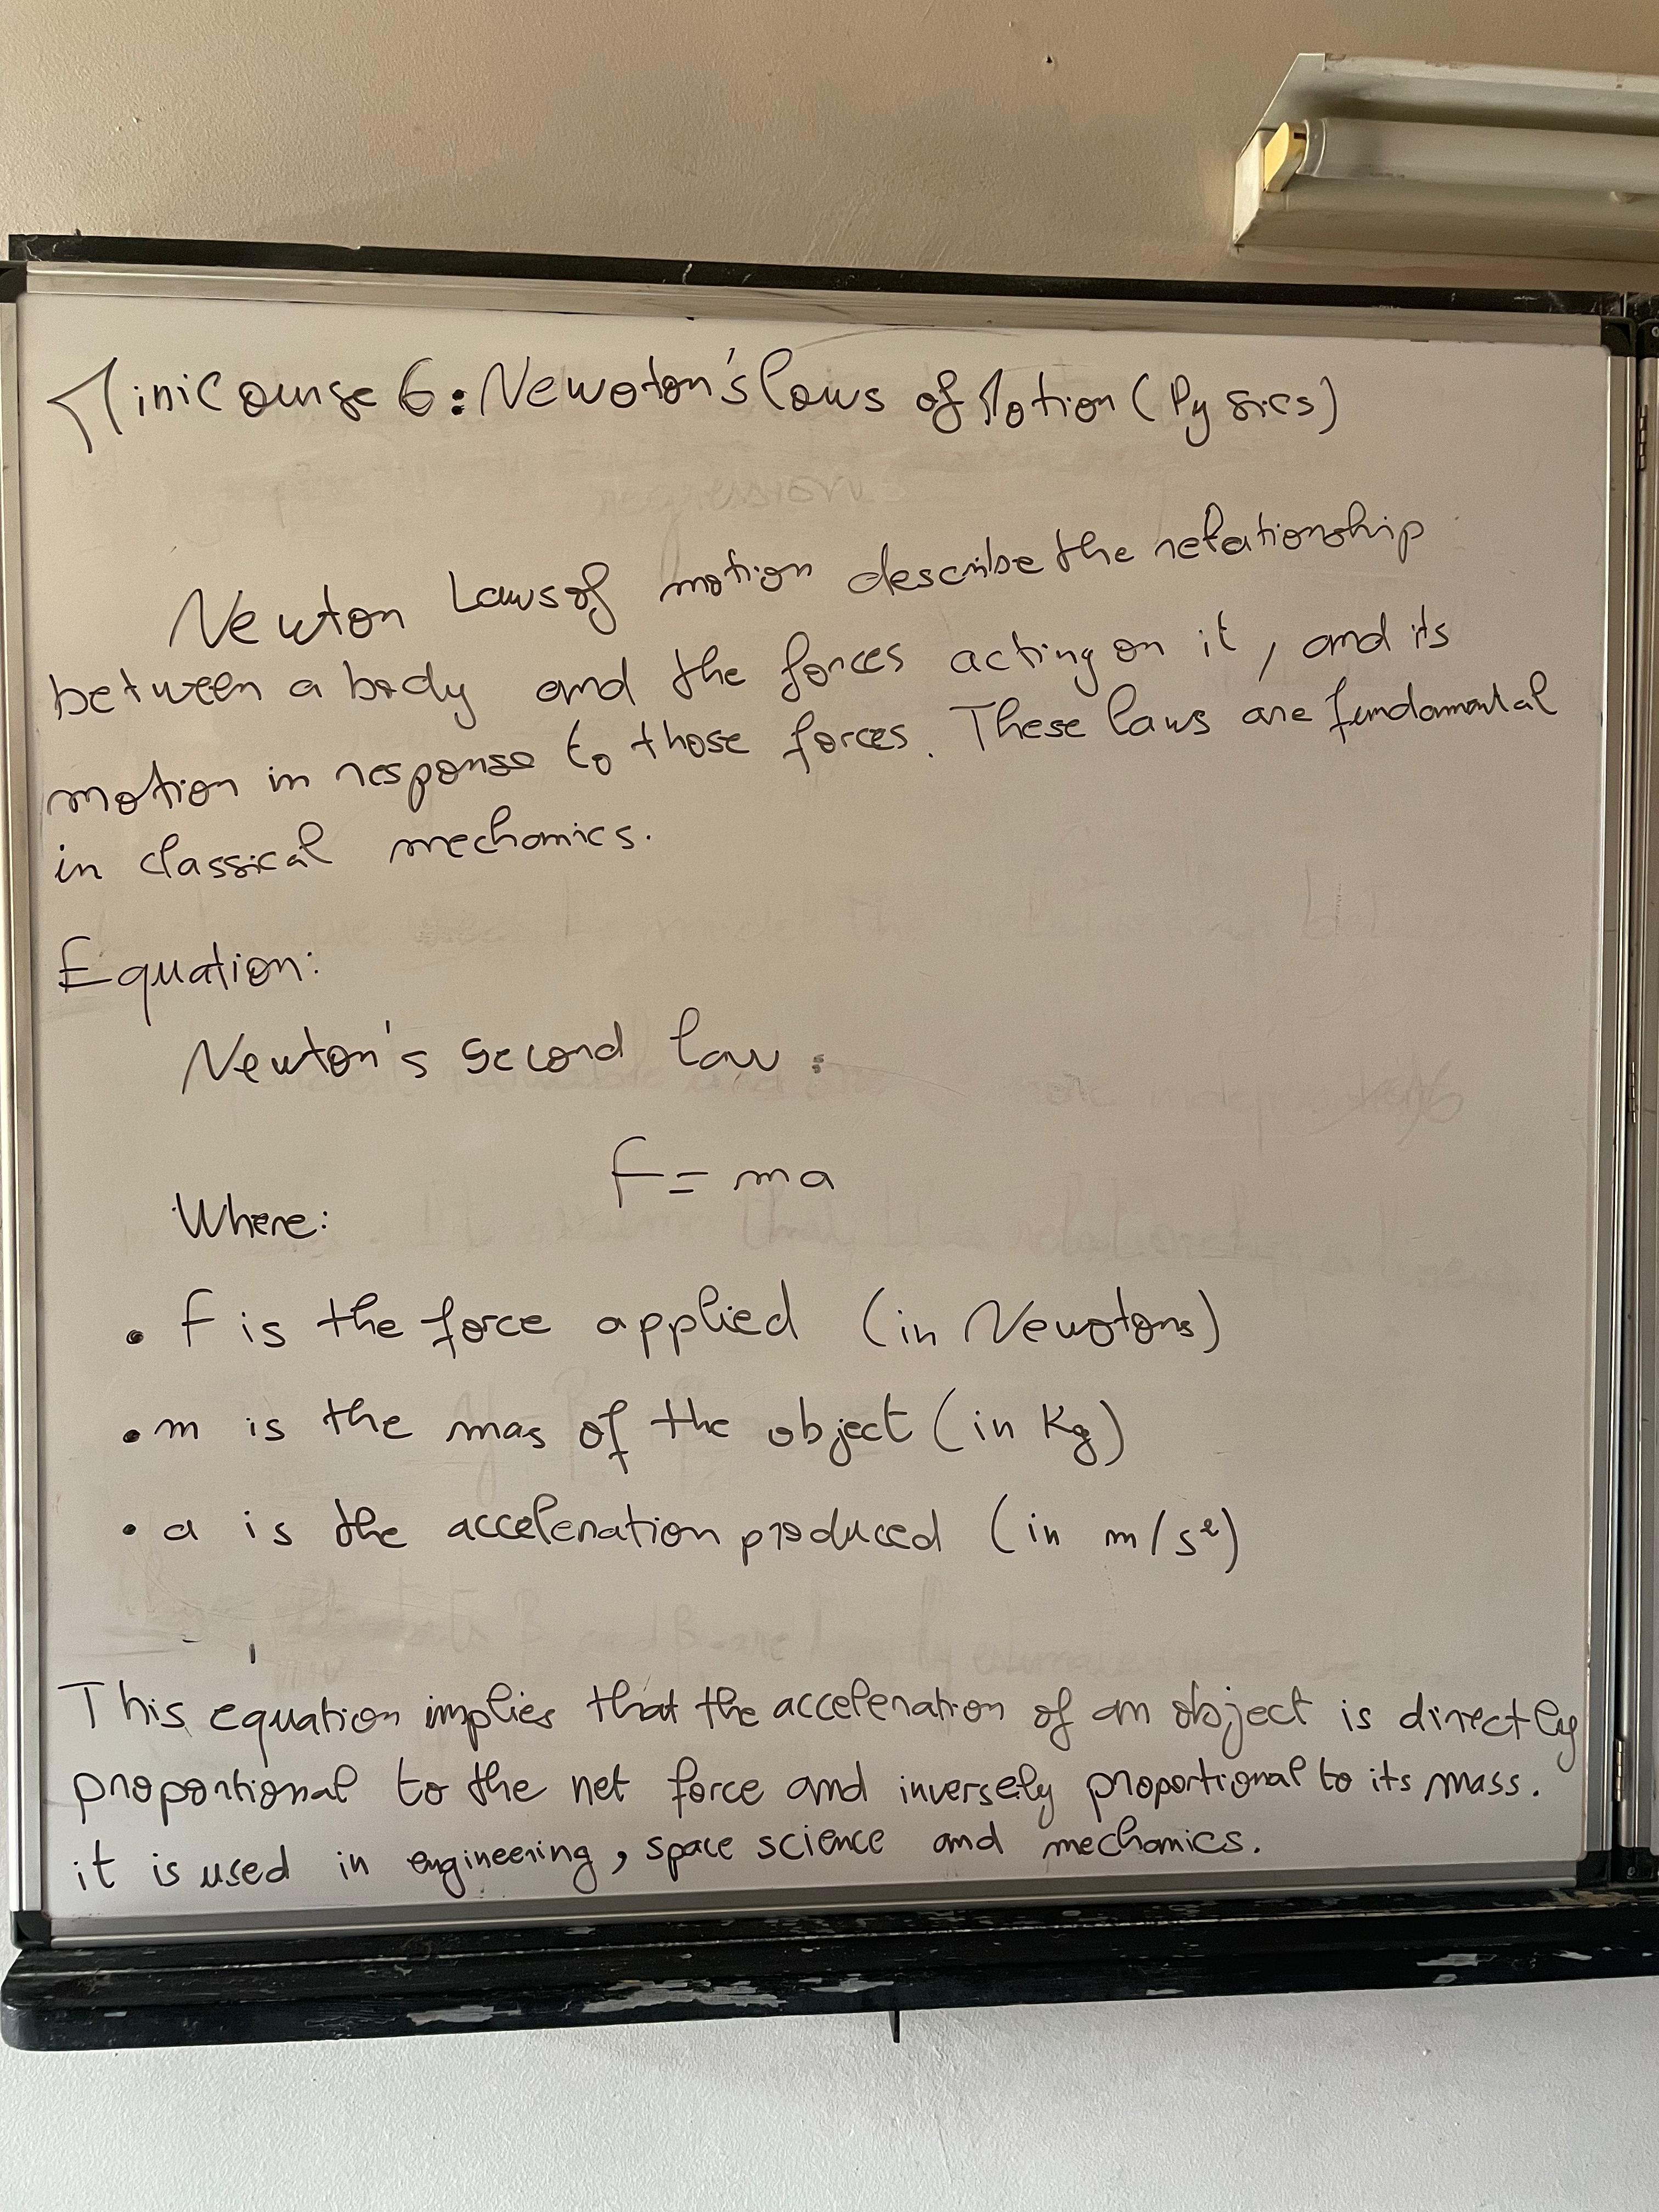 Minicourse 6: Newoton's laws of Motion (Pysics)
Newton Laws of motion describe the relationship
between a body and the forces acting on it, and its
motion in response to those forces. These laws are fundamental
in classical mechanics.
Equation:
Newton's second law:
F = ma
Where:
• F is the force applied (in Newotons)
• m is the mas of the object (in Kg)
• a is the acceleration produced (in m/s²)
This equation implies that the acceleration of an object is directly
proportional to the net force and inversely proportional to its mass.
it is used in engineering, space science and mechanics.